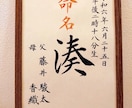 命名
令和六年六月二十五日
午後二時十八分生
湊
父 藤井駿太
母 香織